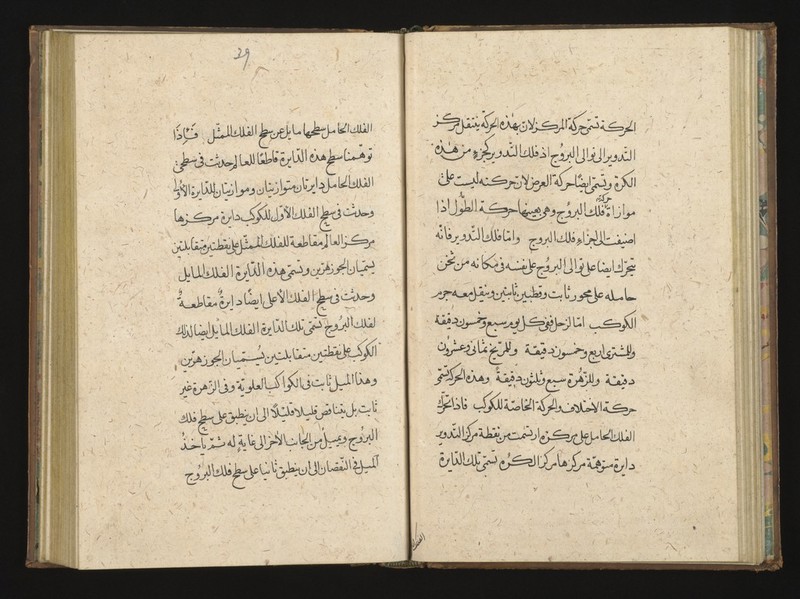 الحركة تسمى حركة المركز لان بهذه الحركة ينتقل مركز
التدوير الى توالى البروج اذ فلك التدوير كجزء من هذه
الكرة وتسمى ايضا حركة العرض لان حركته ليست على
موازاة فلك البروج وهى بعينها حركة الطول اذا
حركة
اضيفت الى اجزاء فلك البروج واما فلك التدوير فانه
يتحرك ايضا على توالى البروج على نفسه فى مكانه من ثخن
حامله على محور ثابت وقطبين ثابتين وينقل معه جرم
الكوكب اما لزحل ففى كل يوم سبع وخمسون دقيقة
وللمشترى اربع وخمسون دقيقة وللمريخ ثمانى وعشرون
دقيقة وللزهرة سبع وثلثون دقيقة وهذه الحركة تسمى
حركة الاختلاف والحركة الخاصة للكوكب فاذا تحرك
الفلك الحامل على مركزه ارتسمت من نقطة مركز التدوير
دايرة متوهمة مركزها مركز الكره تسمى تلك الدايرة
الفلك
29
الفلك الحامل سطحها مايل عن سطح الفلك الممثل فاذا
توهمنا سطح هذه الدايرة قاطعا للعالم حدثت فى سطحى
الفلك الحامل دايرتان متوازيتان وموازيتان للدايرة الاولى
وحدثت فى سطح الفلك الاول للكوكب دايرة مركزها
مركز العالم مقاطعة للفلك الممثل على نقطتين متقابلتين
يسميان الجوزهرين وتسمى هذه الدايرة الفلك المايل
وحدثت فى سطح الفلك الاعلى ايضا دايرة مقاطعة
لفلك البروج تسمى تلك الدايرة الفلك المايل ايضا لذلك
الكوكب على نقطتين متقابلتين يسميان الجوزهرين
وهذا الميل ثابت فى الكواكب العلوية وفى الزهرة غير
ثابت بل يتناقص قليلا قليلا الى ان ينطبق على سطح فلك
البروج ويميل من الجانب الاخر الى غاية له ثم ياخذ
الميل فى النقصان الى ان ينطبق ثانيا على سطح فلك البروج